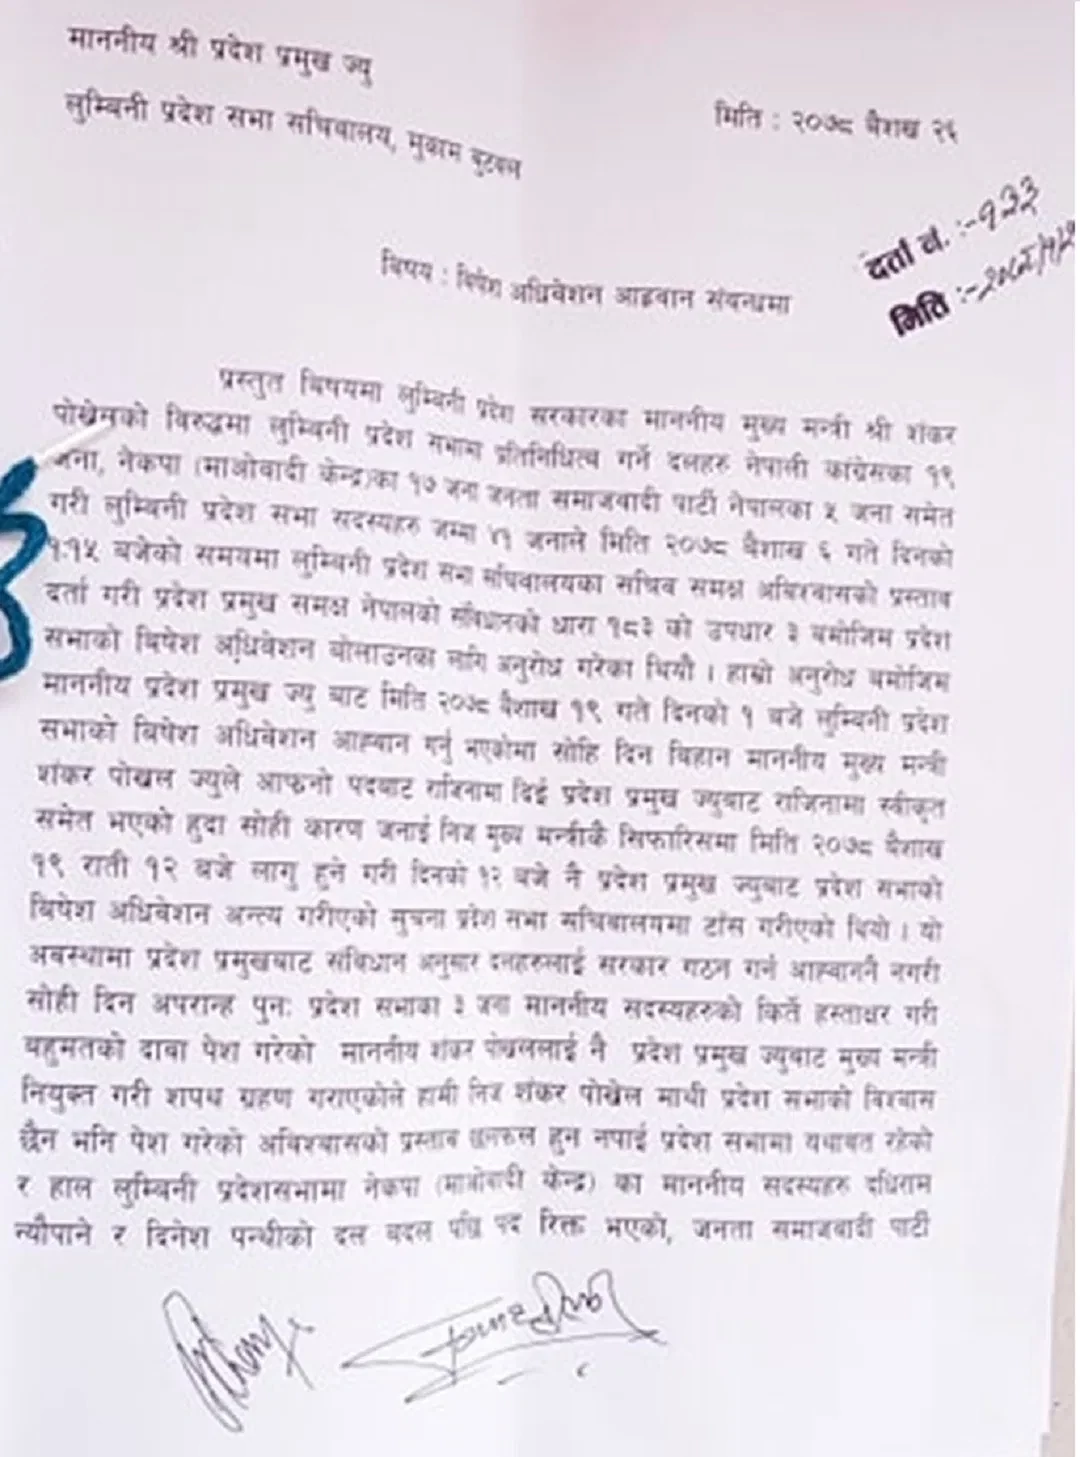 माननीय श्री प्रदेश प्रमुख ज्यु
लुम्बिनी प्रदेश सभा सचिवालय, मुकाम बुटवल
मिति : २०७८ बैशाख २६
दर्ता नं. :- १३३
मिति :-
बिषय : बिषेश अधिवेशन आह्वान संवन्धमा
प्रस्तुत बिषयमा लुम्बिनी प्रदेश सरकारका माननीय मुख्य मन्त्री श्री शंकर
पोखेलको विरुद्धमा लुम्बिनी प्रदेश सभामा प्रतिनिधित्व गर्ने दलहरु नेपाली कांग्रेसका १९
जना, नेकपा (माओवादी केन्द्र)का १७ जना जनता समाजवादी पार्टी नेपालका ५ जना समेत
गरी लुम्बिनी प्रदेश सभा सदस्यहरु जम्मा ४१ जनाले मिति २०७८ बैशाख ६ गते दिनको
१:१५ बजेको समयमा लुम्बिनी प्रदेश सभा सचिवालयका सचिव समक्ष अबिश्वासको प्रस्ताव
दर्ता गरी प्रदेश प्रमुख समक्ष नेपालको संविधानको धारा १८३ को उपधार ३ बमोजिम प्रदेश
सभाको बिषेश अधिवेशन बोलाउनका लागि अनुरोध गरेका थियौ । हाम्रो अनुरोध बमोजिम
माननीय प्रदेश प्रमुख ज्यु बाट मिति २०७८ बैशाख १९ गते दिनको १ बजे लुम्बिनी प्रदेश
सभाको बिषेश अधिवेशन आह्वान गर्नु भएकोमा सोहि दिन बिहान माननीय मुख्य मन्त्री
शंकर पोखल ज्युले आफ्नो पदबाट राजिनामा दिई प्रदेश प्रमुख ज्युबाट राजिनामा स्वीकृत
समेत भएको हुदा सोही कारण जनाई निज मुख्य मन्त्रीकै सिफारिसमा मिति २०७८ बैशाख
१९ राती १२ बजे लागु हुने गरी दिनको १२ बजे नै प्रदेश प्रमुख ज्युबाट प्रदेश सभाको
बिषेश अधिवेशन अन्त्य गरीएको सुचना प्रदेश सभा सचिबालयमा टाँस गरीएको थियो । यो
अवस्थामा प्रदेश प्रमुखबाट संबिधान अनुसार दलहरुलाई सरकार गठन गर्न आह्वाननै नगरी
सोही दिन अपरान्ह पुनः प्रदेश सभाका ३ जना माननीय सदस्यहरुको किर्ते हस्ताक्षर गरी
बहुमतको दाबा पेश गरेको माननीय शंकर पोखेललाई नै प्रदेश प्रमुख ज्युबाट मुख्य मन्त्री
नियुक्त गरी शपथ ग्रहण गराएकोले हामी निज शंकर पोखेल माथी प्रदेश सभाको विश्वास
छैन भनि पेश गरेको अबिश्वासको प्रस्ताव छलफल हुन नपाई प्रदेश सभामा यथावत रहेको
र हाल लुम्बिनी प्रदेशसभामा नेकपा (माओवादी केन्द्र) का माननीय सदस्यहरु दधिराम
न्यौपाने र दिनेश पन्थीको दल बदल पछि पद रिक्त भएको, जनता समाजवादी पार्टी